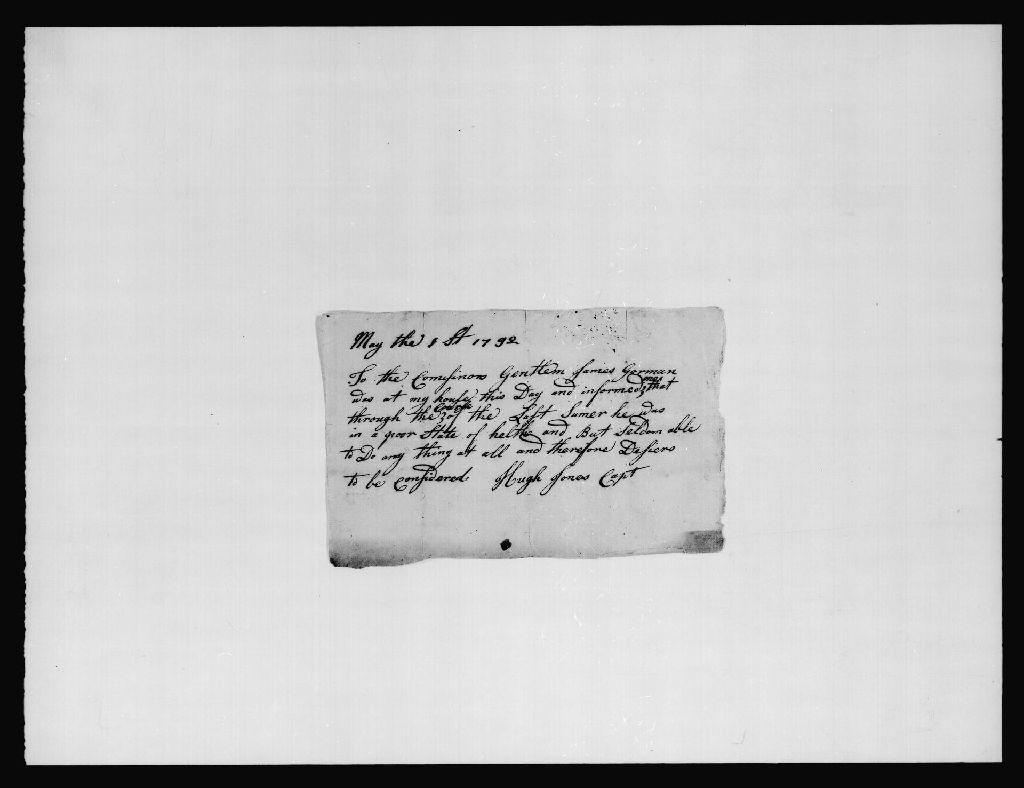 May the 1 St 1792
To the Comisinors Gentlem James German
was at my house this Day and informed mee that
through the Cors of the Last Sumer he was
in a poor State of helthe and But Seldom able
to Do any thing at all and therefore Dessiers
to be Considered Hugh Jones Capt